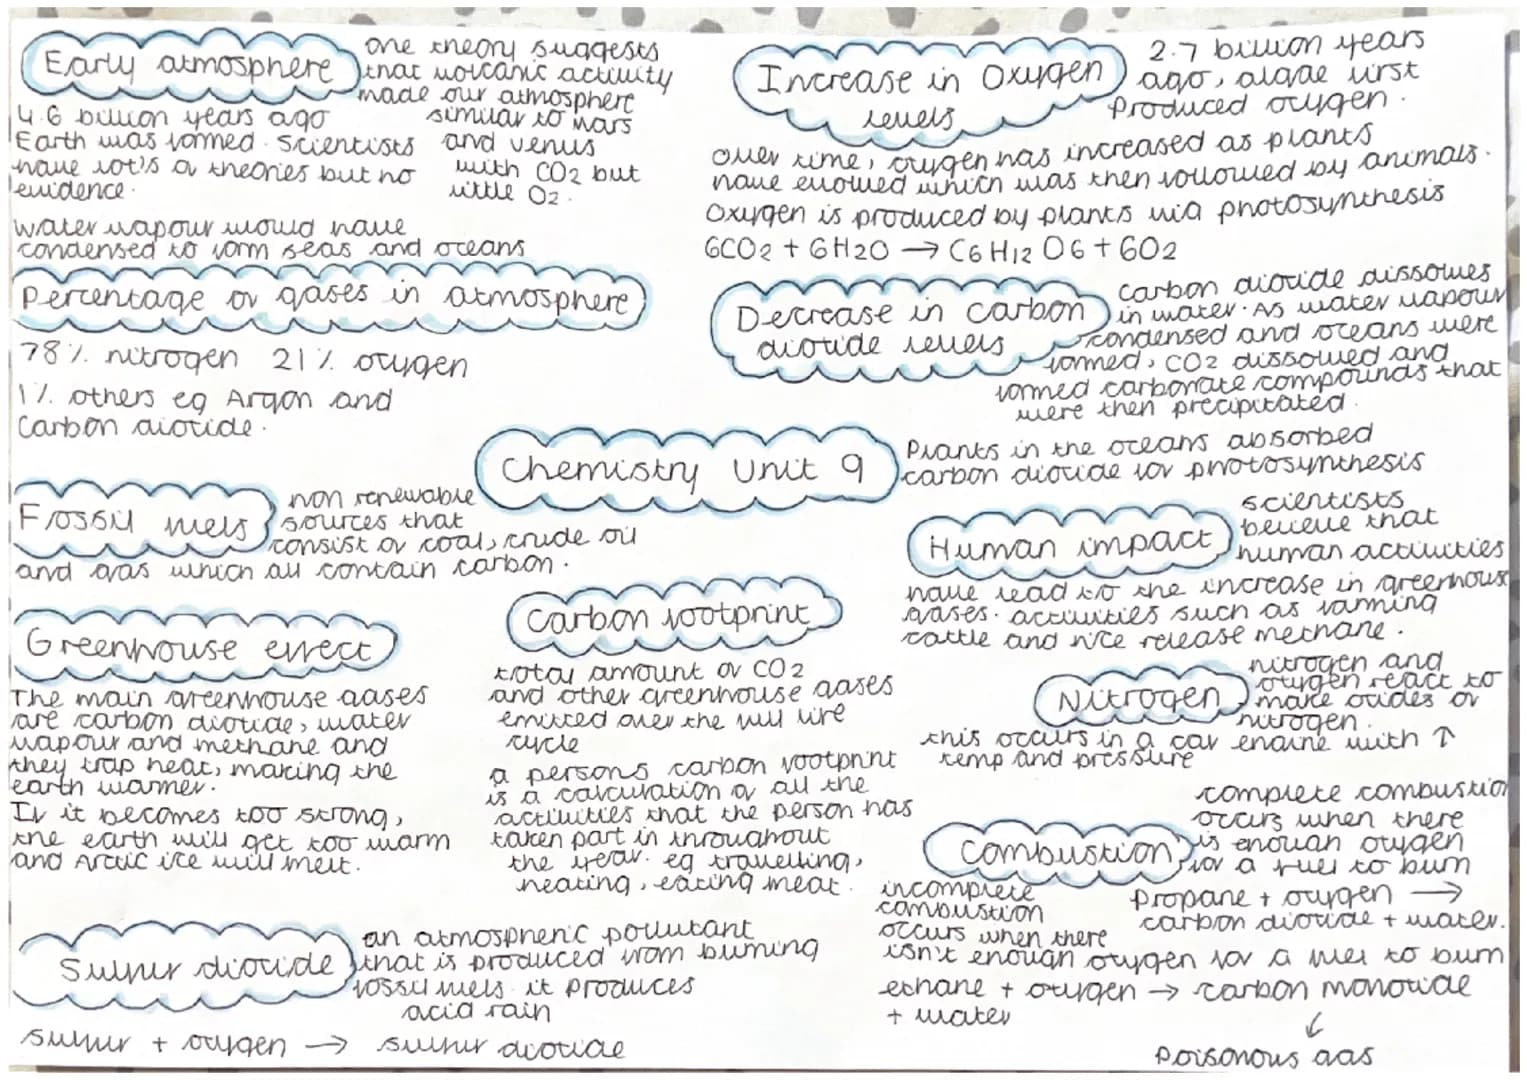 Early atmosphere
one theory suggests
that volcanic activity
made our atmosphere
similar to mars
and venus
with CO2 but
little O2.
4.6 billion years ago
Earth was formed. Scientists
have lot's of theories but no
evidence.
water vapour would have
condensed to form seas and oceans
Percentage of gases in atmosphere
78% nitrogen 21% oxygen
1% others eg Argon and
Carbon dioxide.
Fossil fuels
non renewable
sources that
consist of coal, crude oil
and gas which all contain carbon.
Greenhouse effect
The main greenhouse gases
are carbon dioxide, water
vapour and methane and
they trap heat, making the
earth warmer.
If it becomes too strong,
the earth will get too warm
and Arctic ice will melt.
Sulfur dioxide
an atmospheric pollutant
that is produced from burning
fossil fuels. it produces
acid rain
sulfur + oxygen → sulfur dioxide
Chemistry Unit 9
Carbon footprint
total amount of CO2
and other greenhouse gases
emitted over the full life
cycle
a persons carbon footprint
is a calculation of all the
activities that the person has
taken part in throughout
the year. eg travelling,
heating, eating meat.
Increase in Oxygen
levels
2.7 billion years
ago, algae first
produced oxygen.
Over time, oxygen has increased as plants
have evolved which was then followed by animals.
Oxygen is produced by plants via photosynthesis
6CO2 + 6H2O → C6H12O6 + 6O2
Decrease in carbon
dioxide levels
carbon dioxide dissolves
in water. As water vapour
condensed and oceans were
formed, CO2 dissolved and
formed carbonate compounds that
were then precipitated.
Plants in the oceans absorbed
carbon dioxide for photosynthesis
Human impact
scientists
believe that
human activities
have lead to the increase in greenhouse
gases. activities such as farming
cattle and rice release methane.
Nitrogen
nitrogen and
oxygen react to
make oxides of
nitrogen.
this occurs in a car engine with ↑
temp and pressure
Combustion
complete combustion
occurs when there
is enough oxygen
for a fuel to burn
propane + oxygen →
carbon dioxide + water.
incomplete
combustion
occurs when there
isn't enough oxygen for a fuel to burn
ethane + oxygen → carbon monoxide
+ water
↓
poisonous gas